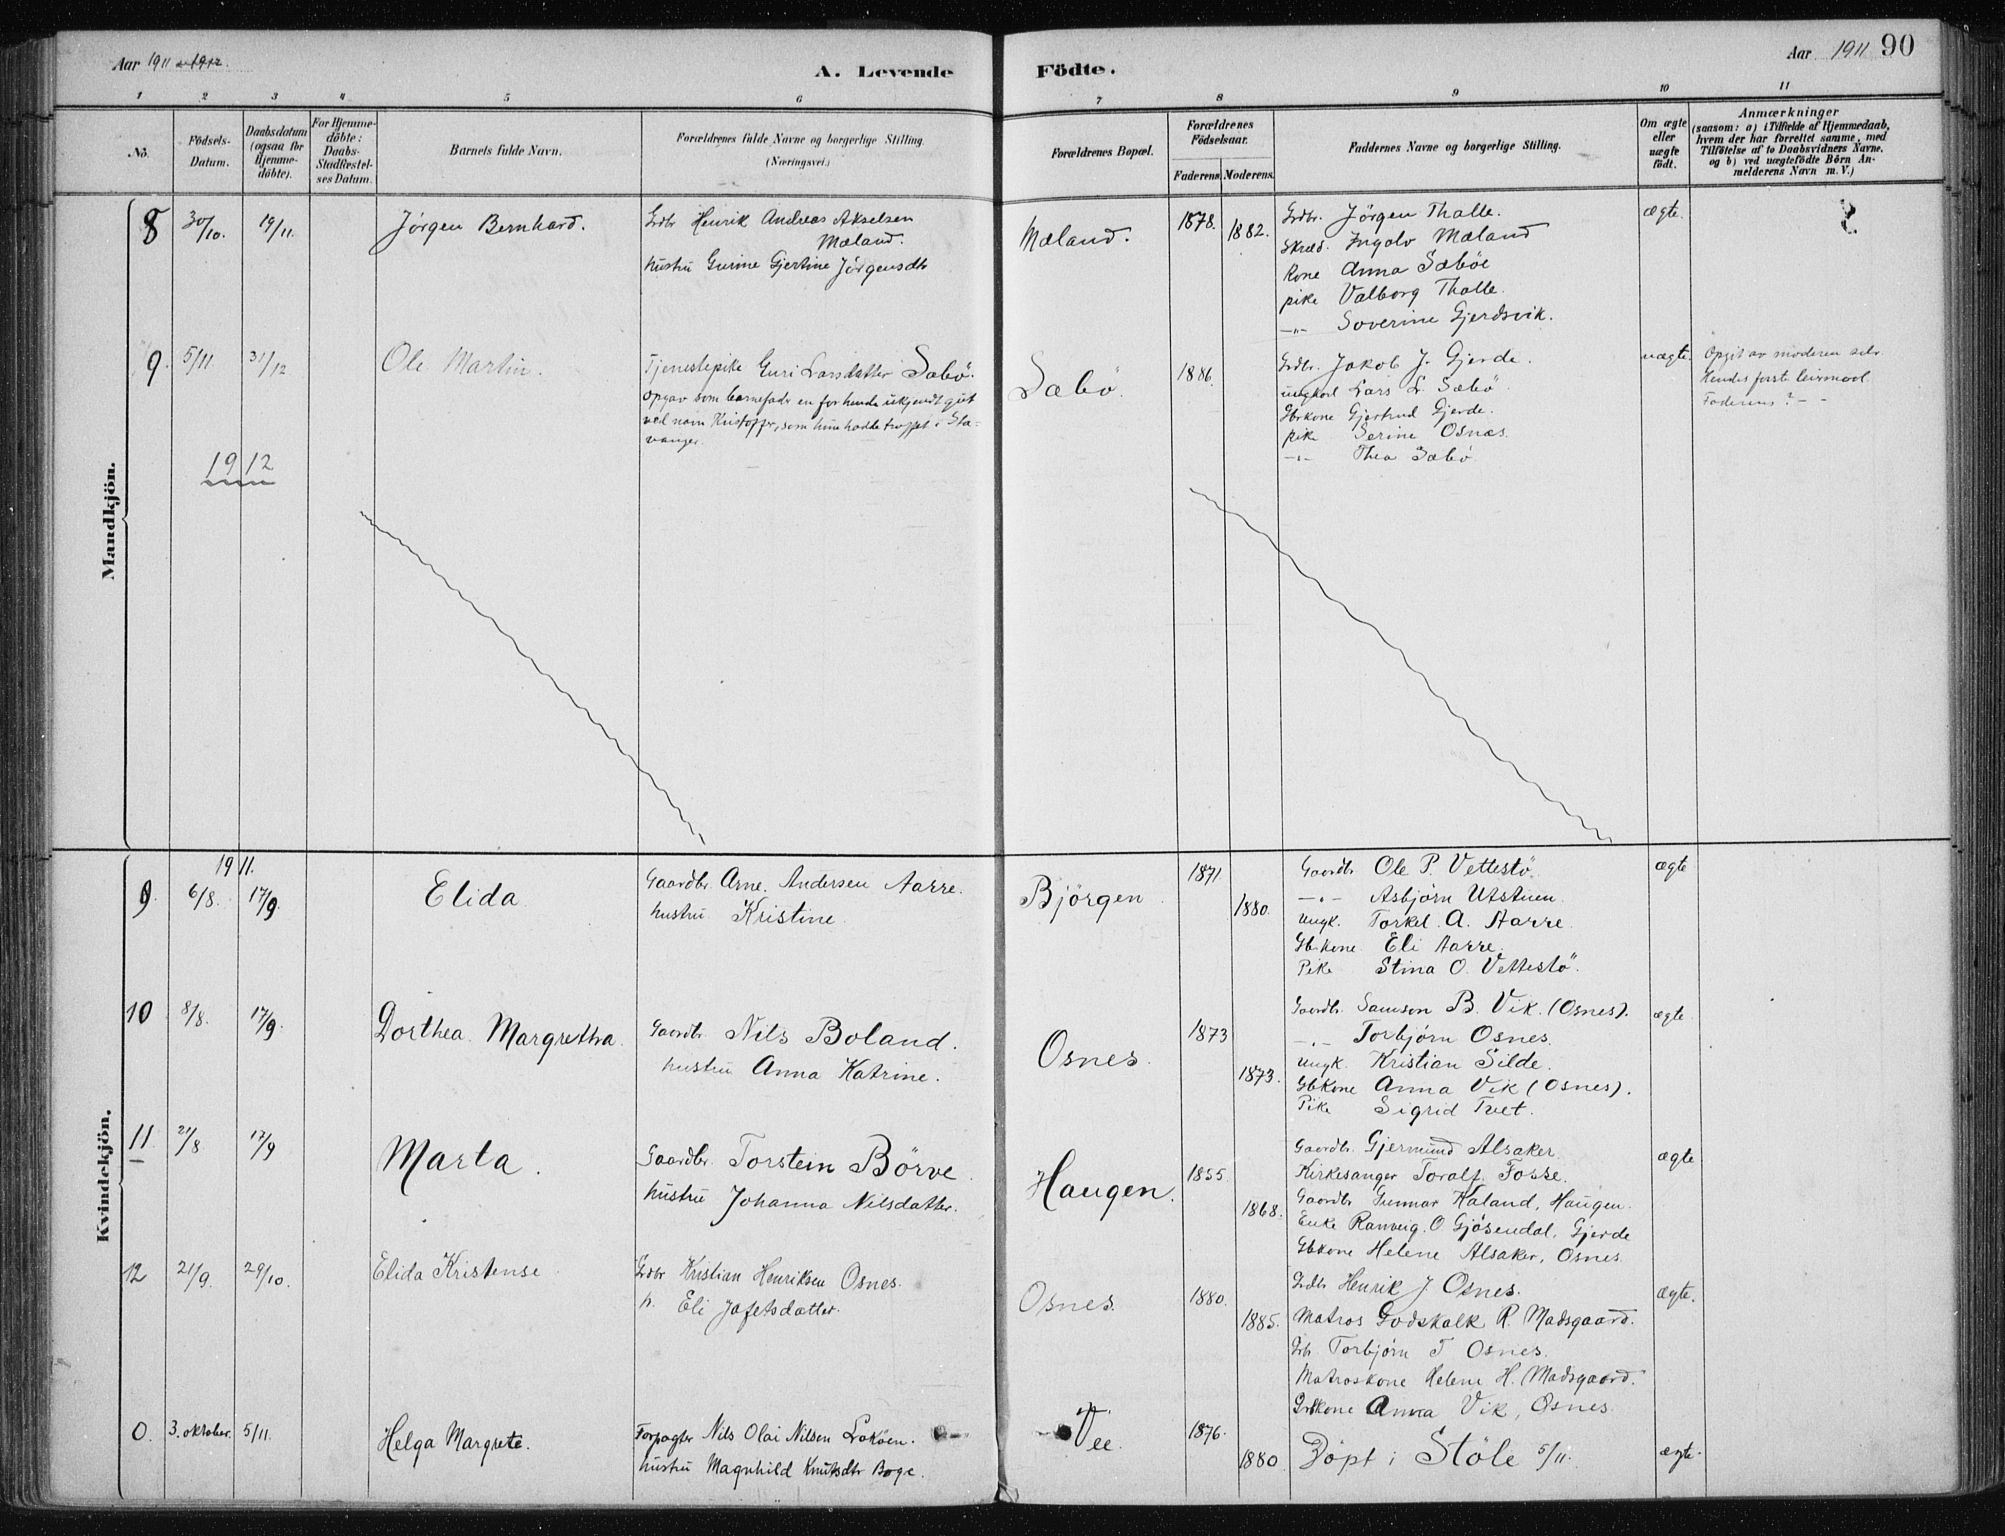 Aar 1911 - 1912.
A. Levende
Födte.
Aar 1911
90
1 2 3 4 5 6 7 8 9 10 11
No.
Födsels-
Datum.
Daabsdatum
(ogsaa for
Hjemme-
döbte).
For Hjemme-
döbte:
Daabs-
Stadfæstel-
ses Datum.
Barnets fulde Navn.
Forældrenes fulde Navne og borgerlige Stilling.
(Næringsvei.)
Forældrenes Bopæl.
Forældrenes
Födselsaar.
Faderens. Moderens.
Faddernes Navne og borgerlige Stilling.
Om ægte
eller
uægte
födt.
Anmærkninger
(saasom: a) i Tilfælde af Hjemmedaab,
hvem der har forrettet samme, med
Tilföielse af to Daabsvidners Navne,
og b) ved uægtefödte Börn An-
melderens Navn m. V.)
Mandkjön.
8 30/10. 19/11. Jørgen Bernhard.
Grdbr Henrik Andreas Akselsen
Mæland.
hustru Gurine Gjertine Jørgensdtr
Mæland.
1878. 1882.
Grdbr. Jørgen Thalle.
Skræd. Ingolv Mæland
Kone Anna Sæböe
pike Valborg Thalle.
-„- Soverine Gjerdsvik.
ægte.
9 5/11 31/12 Ole Martin.
Tjenestepike Guri Larsdatter Sæbö.
opgav som barnefadr en for hende ukjendt gut
ved navn Kristoffer, som hun hadde truffet i Sta-
vanger.
Sæbö.
1886.
Grdbr. Jakob J. Gjerde.
ungkarl Lars L. Sæbö
Gbrkone Gjertrud Gjerde.
pike Serine Osnæs.
-„- Thea Sæbö
uægte.
Opgit av moderen selv.
Hendes første leiermaal.
Faderens ? - -
1912
Kvindekjön.
1911.
9 6/8. 17/9. Elida
Gaardbr. Arne. Andersen Aarre.
hustru Kristine.
Bjørgen.
1871 1880.
Gaardbr Ole P. Vettestö.
-„- Asbjørn Utstuen.
Ungk. Torkel. A. Aarre.
Gbrkone Eli Aarre.
Pike Stina O. Vettestö.
ægte
10 8/8. 17/9. Dorthea Margretha.
Gaardbr Nils Boland.
hustru Anna Katrine.
Osnes.
1873 1873.
Gaardbr. Samson B. Vik. (Osnes).
-„- Torbjørn Osnes.
Ungk. Kristian Silde.
Gbkone Anna Vik (Osnes).
Pike Sigrid Tvet.
ægte.
11 21/8 17/9 Marta.
Gaardbr. Torstein Börve.
hustru Johanna Nilsdatter.
Haugen.
1855. 1868.
Gaardbr. Gjermund Alsaker.
Kirkesanger Toralf Fosse.
Gaardbr Gunnar Haland, Haugen.
Enke Ranveig. O. Gjösendal, Gjerde
Gbkone Helene Alsaker, Osnes
ægte
12 21/9. 29/10. Elida Kristense
Grdbr Kristian Henriksen Osnes.
h. Eli Jafetsdatter.
Osnes.
1880. 1885.
Grdbr Henrik J Osnes.
Matros Godskalk R. Madsgaard.
Grbr. Torbjørn T Osnes.
Matroskone Helene H. Madsgaard.
Grbkone Anna Vik, Osnes
ægte.
0. 3. oktober. 5/11. Helga Margrete.
Forpagter Nils Olai Nilsen Løkøen.
hustru Magnhild Knutsdtr Boge.
Vee.
1876. 1880
Döpt i Stöle 5/11.
ægte.